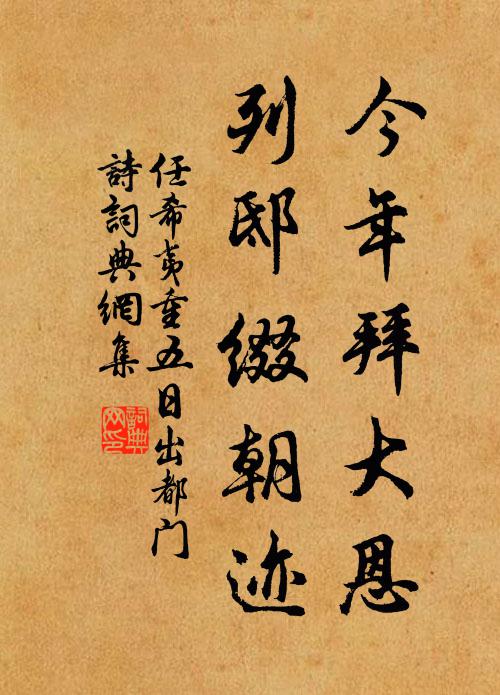 今年拜大恩
列邸缀朝迹
任希夷重五日出都门
詩詞典網集
詞典网印